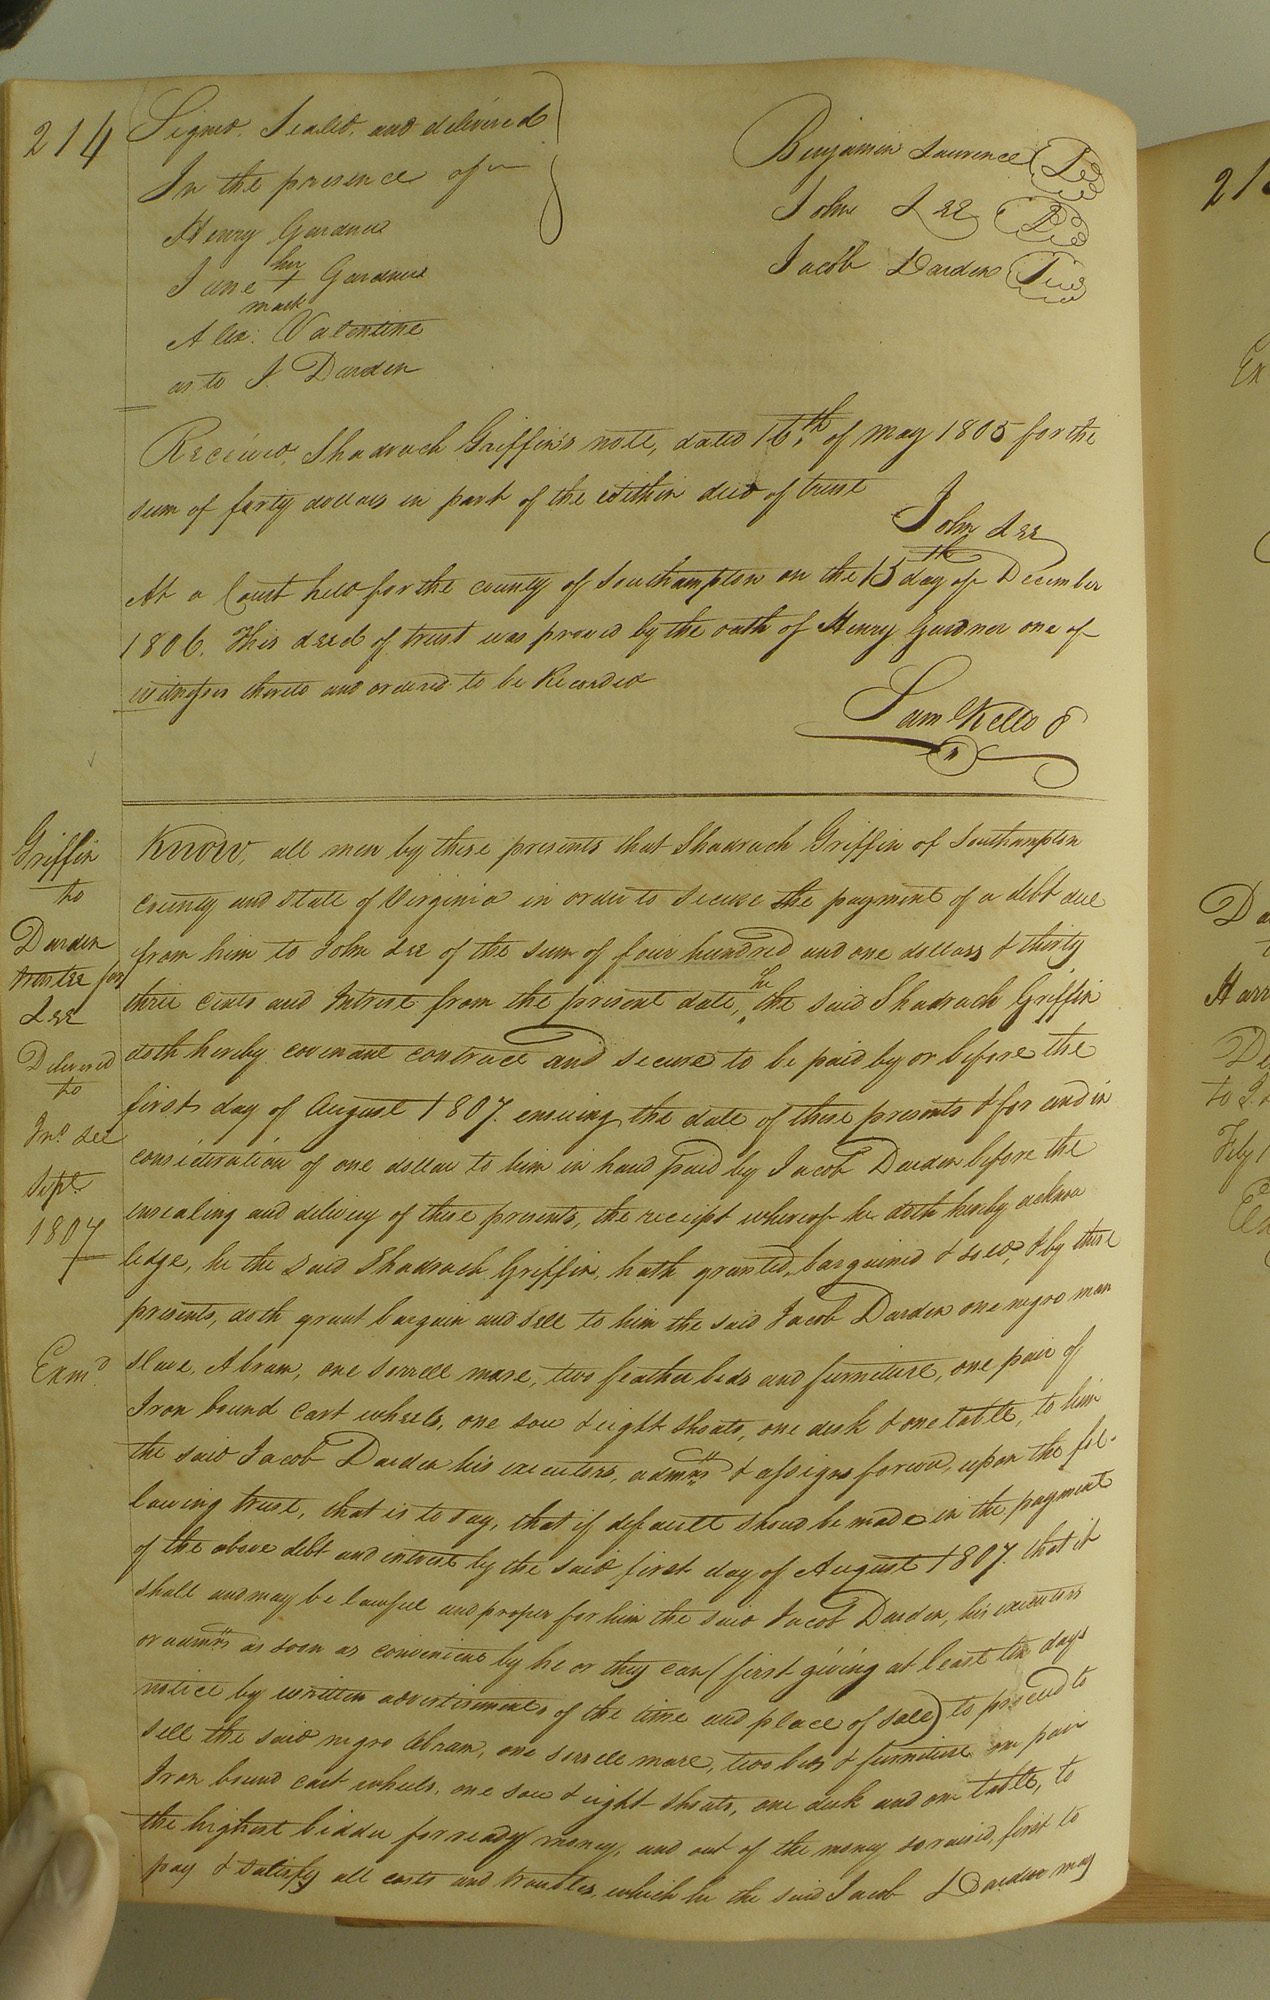 214
Signed, Sealed, and delivered
In the presence of
Henry Gardner
her
Jane + Gardner
mark
Alex: Valentine
as to J. Darden
Benjamin Lawrence
John Lee
Jacob Darden
Received, Shadrach Griffin's note, dated 16th of May 1805 for the
sum of forty dollars in part of the within deed of trust
John Lee
At a Court held for the county of Southampton on the 15th day of December
1806. This deed of trust was proved by the oath of Henry Gardner one of
witnesses thereto and ordered to be Recorded
Sam Kello
Griffin
to
Darden
trustee for
Lee
Delivered
to
Jno. Lee
Sept.
1807
Exmd.
Know, all men by these presents that Shadrach Griffin of Southampton
county and State of Virginia in order to secure the payment of a debt due
from him to John Lee of the sum of four hundred and one dollars & thirty
three cents and Intrest from the present date, he the said Shadrach Griffin
doth hereby covenant contract and secure to be paid by or before the
first day of August 1807. ensuing the date of these presents & for and in
consideration of one dollar to him in hand paid by Jacob Darden before the
ensealing and delivery of these presents, the receipt whereof he doth hereby acknow
ledge, he the said Shadrach Griffin, hath granted, bargained & sold, & by these
presents, doth grant bargain and sell to him the said Jacob Darden one negro man
slave, Abram, one sorrell mare, two feather beds and furniture, one pair of
Iron bound cart wheels, one sow & eight shoats, one desk & one table, to him
the said Jacob Darden his executors, admrs & assigns forever, upon the fol-
lowing trust, that is to say, that if default should be made in the payment
of the above debt and intrest by the said first day of August 1807. that it
shall and may be lawful and proper for him the said Jacob Darden, his executors
or admrs as soon as convenient by he or they can (first giving at least ten days
notice by written advertisements of the time and place of sale) to proceed to
sell the said negro Abram, one sorrell mare, two beds & furniture one pair
Iron bound cart wheels, one sow & eight shoats, one desk and one table, to
the highest bidder for ready money, and out of the money so raised, first to
pay & satisfy all costs and troubles which he the said Jacob Darden may